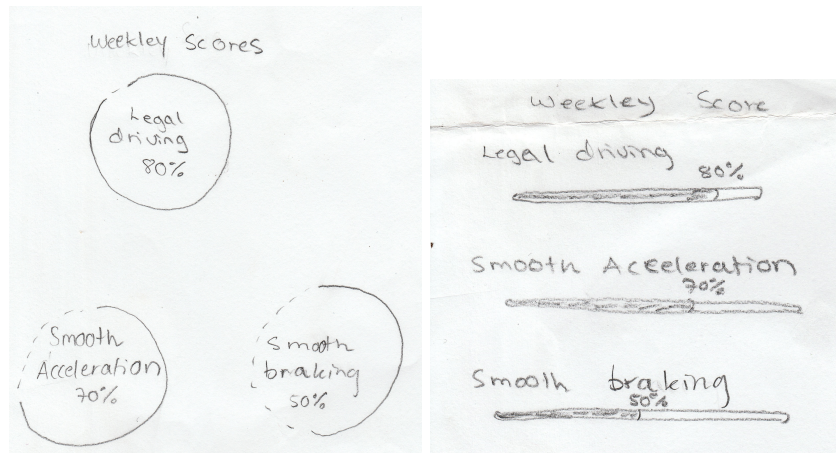 Weekley Scores
Legal
driving
80%
Smooth
Acceleration
70%
Smooth
braking
50%
Weekley Score
Legal driving
80%
Smooth Acceleration
70%
Smooth braking
50%